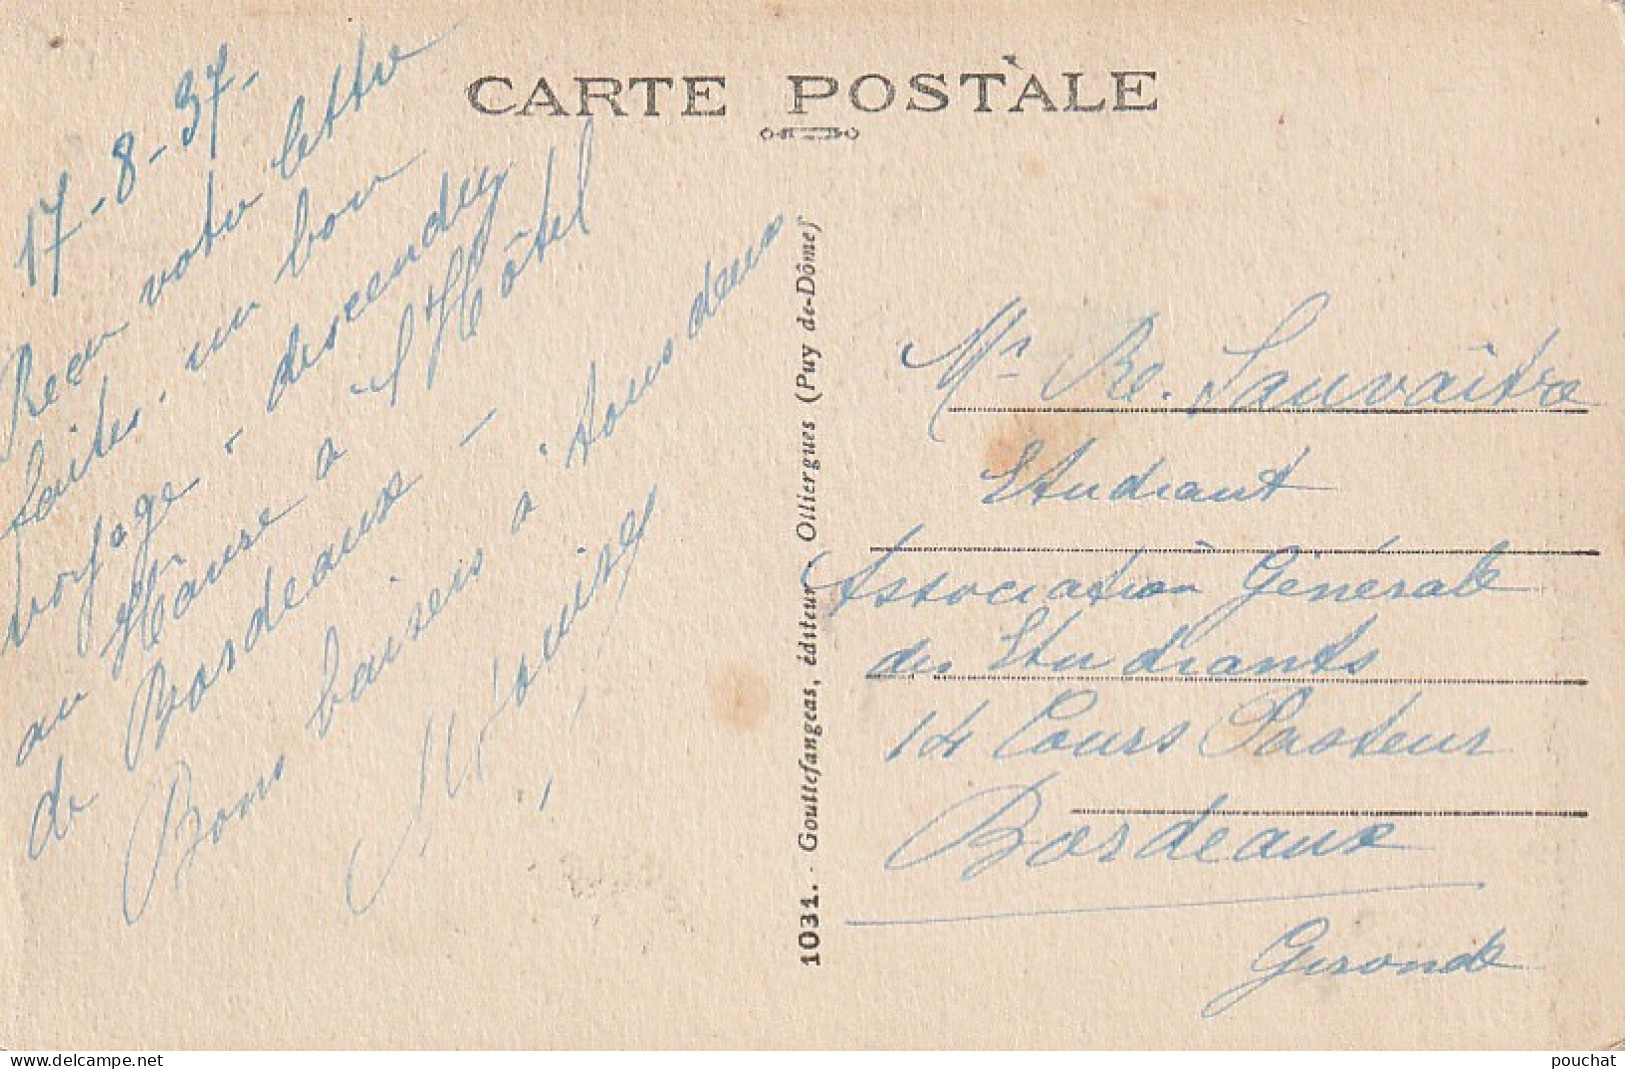 CARTE POSTALE
17-8-37-
Reçu votre lettre
faites un bon
voyage - descendez
au Hâvre à l'Hôtel
de Bordeaux -
Bons baisers à tous deux
1031. - Gouttefangeas, éditeur, Olliergues (Puy-de-Dôme)
Mr R. Sauvaître
Etudiant
Association Générale
des Etudiants
14 Cours Pasteur
Bordeaux
Gironde
pouchat